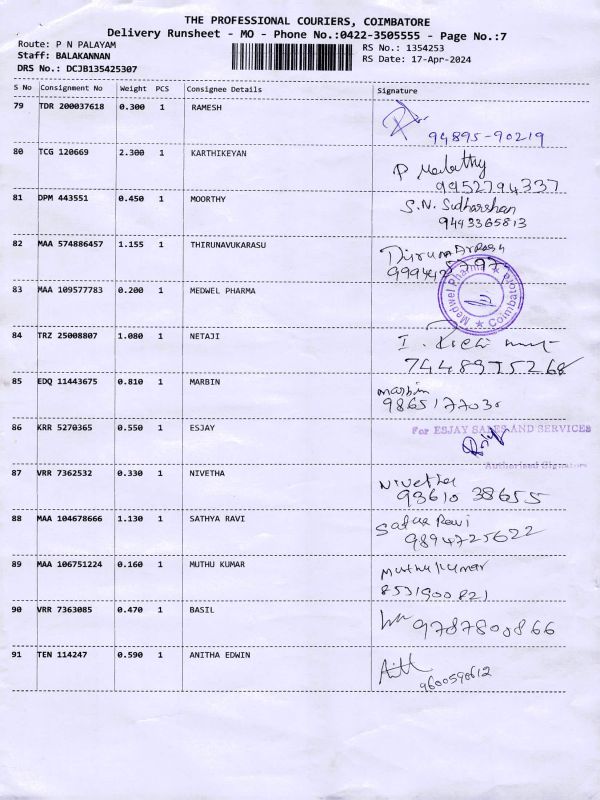 THE PROFESSIONAL COURIERS, COIMBATORE
Delivery Runsheet - MO - Phone No.:0422-3505555 - Page No.:7
Route: P N PALAYAM
Staff: BALAKANNAN
DRS No.: DCJB135425307
RS No.: 1354253
RS Date: 17-Apr-2024
S No Consignment No Weight PCS Consignee Details Signature
79 TDR 200037618 0.300 1 RAMESH
94895-90219
80 TCG 120669 2.300 1 KARTHIKEYAN
P Malathy
9952794337
81 DPM 443551 0.450 1 MOORTHY
S.N. Sudharshan
9443365813
82 MAA 574886457 1.155 1 THIRUNAVUKARASU
83 MAA 109577783 0.200 1 MEDWEL PHARMA
Medwel Pharma ★ Coimbatore ★
84 TRZ 25008807 1.080 1 NETAJI
7448975268
85 EDQ 11443675 0.810 1 MARBIN
marbin
986517703
86 KRR 5270365 0.550 1 ESJAY
For ESJAY SALES AND SERVICES
Authorised Signatory
87 VRR 7362532 0.330 1 NIVETHA
Nivetha
93610 38655
88 MAA 104678666 1.130 1 SATHYA RAVI
9894725622
89 MAA 106751224 0.160 1 MUTHU KUMAR
Muthukumar
8531900821
90 VRR 7363085 0.470 1 BASIL
9787800866
91 TEN 114247 0.590 1 ANITHA EDWIN
9600590612